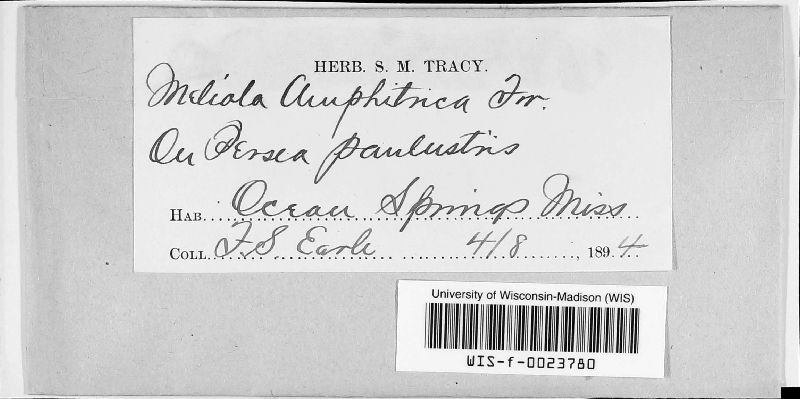 HERB. S. M. TRACY.
Meliola Amphitrica Fr.
On Persea paulustris
HAB. Ocean Springs Miss
COLL. F. S Earle 4/8, 1894
University of Wisconsin-Madison (WIS)
WIS-f-0023780